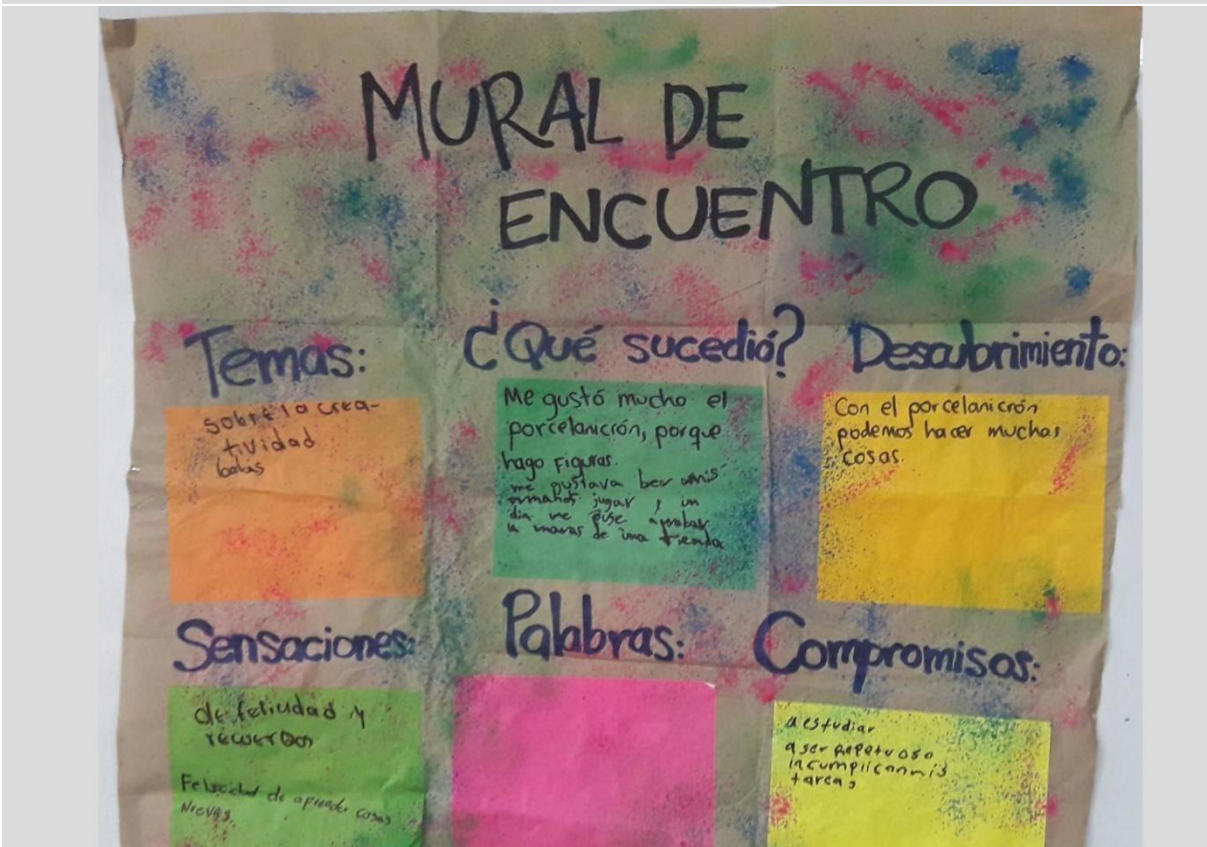 MURAL DE
ENCUENTRO
Temas:
sobre la crea-
tividad
¿Qué sucedió?
Me gustó mucho el
porcelanicrón, porque
hago figuras.
me gustava ber amis
ermanos jugar y un
dia me puse aprobar
de una tienda
Descubrimiento:
Con el porcelanicrón
podemos hacer muchas
cosas.
Sensaciones:
de felicidad y
recuerdos
Felicidad de aprender cosas
Nuevas.
Palabras:
Compromisos:
a estudiar
a ser
tareas